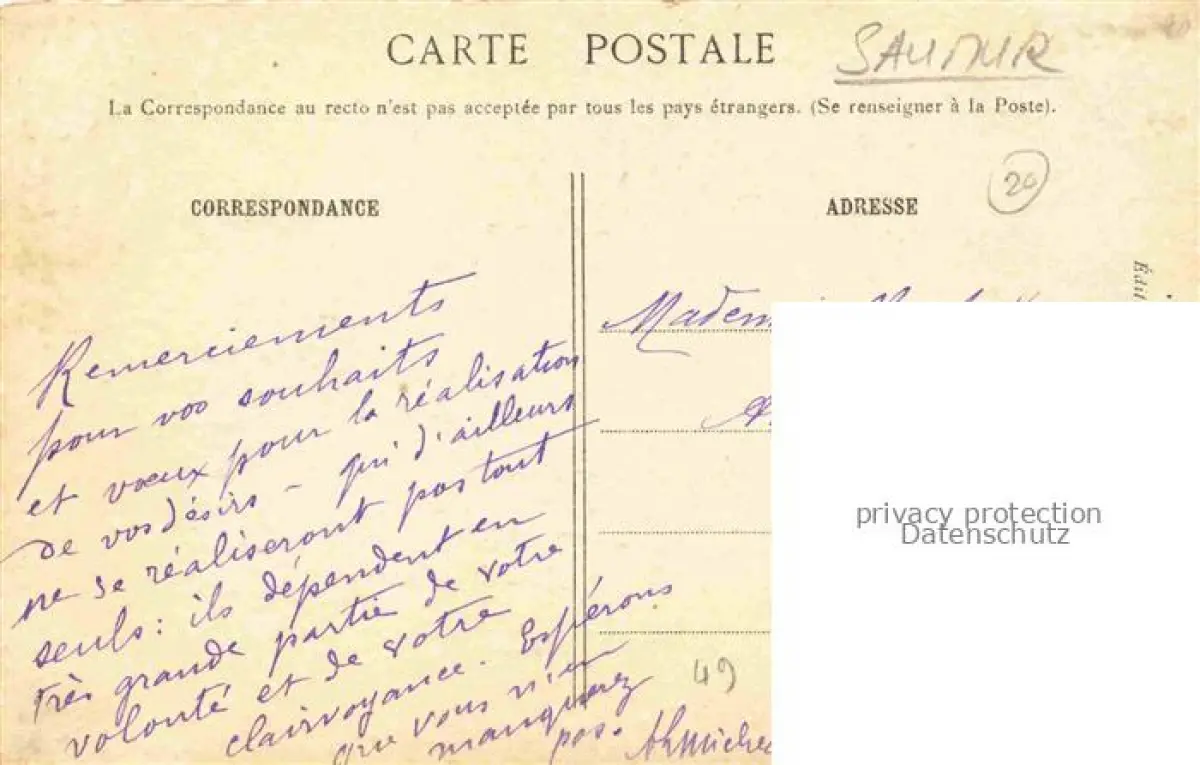 CARTE POSTALE
SAUMUR
La Correspondance au recto n'est pas acceptée par tous les pays étrangers. (Se renseigner à la Poste).
20
CORRESPONDANCE
Remerciements
pour vos souhaits
et vœux pour la réalisation
de vos désirs - qui d'ailleurs
ne se réaliseront pas tout
seuls: ils dépendent en
très grande partie de votre
volonté et de votre
clairvoyance. Espérons
que vous n'en
manquerez
pas.
ADRESSE
Édit
Madem
49
privacy protection
Datenschutz